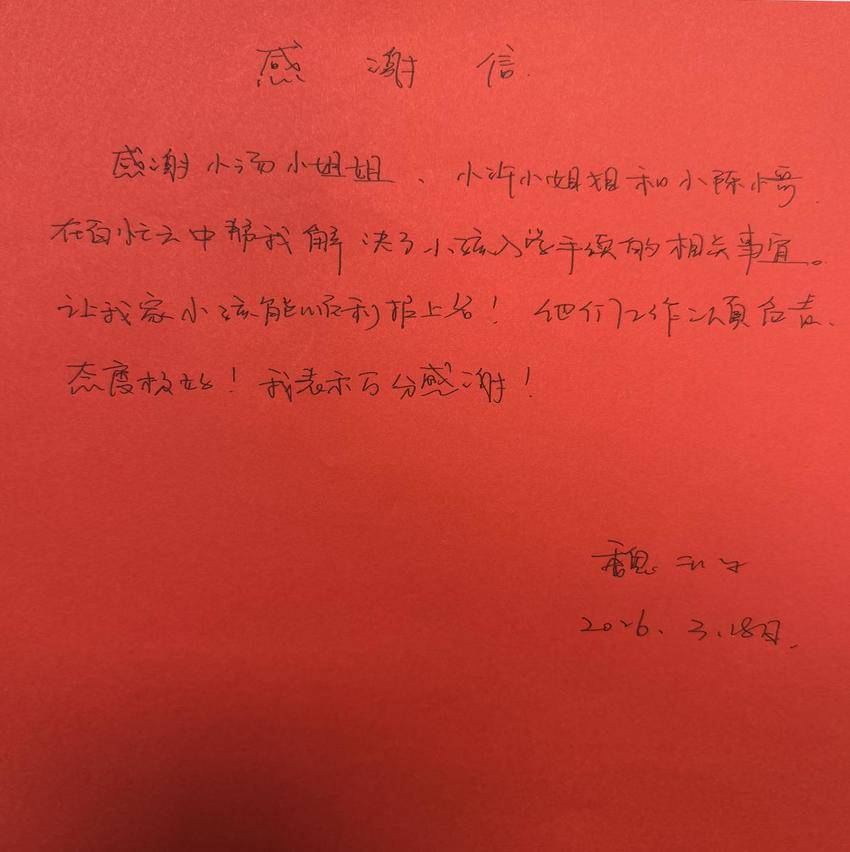 感谢信
感谢小汤小姐姐、小许小姐姐和小陈小哥
在百忙之中帮我解决了小孩入学手续的相关事宜。
让我家小孩能顺利报上名！他们工作认真负责、
态度极好！我表示万分感谢！
魏
2026.3.18日.